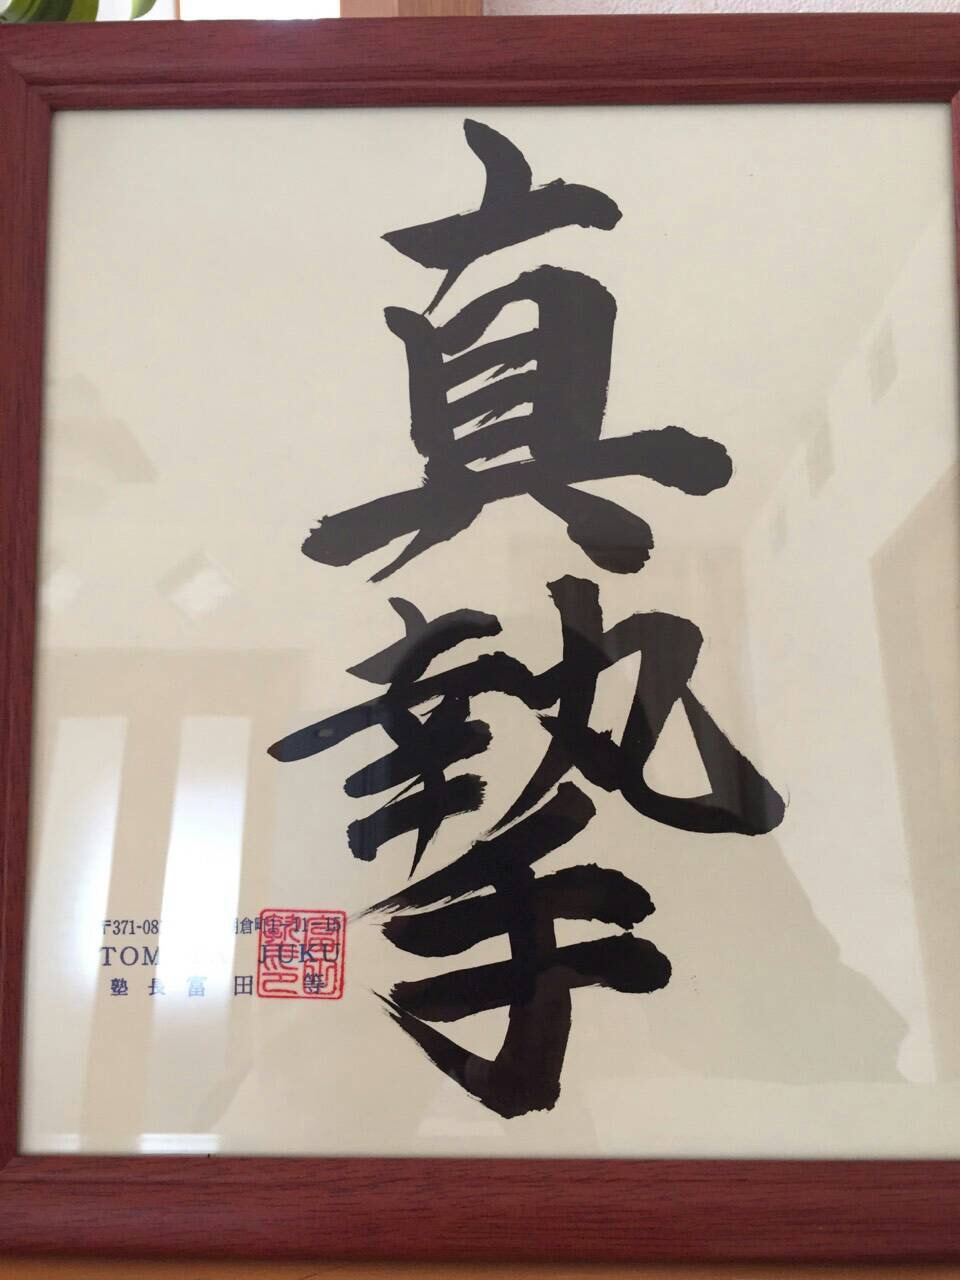 真摯
〒371-08 朝倉町1-11-15
TOM JUKU
塾長富田 等